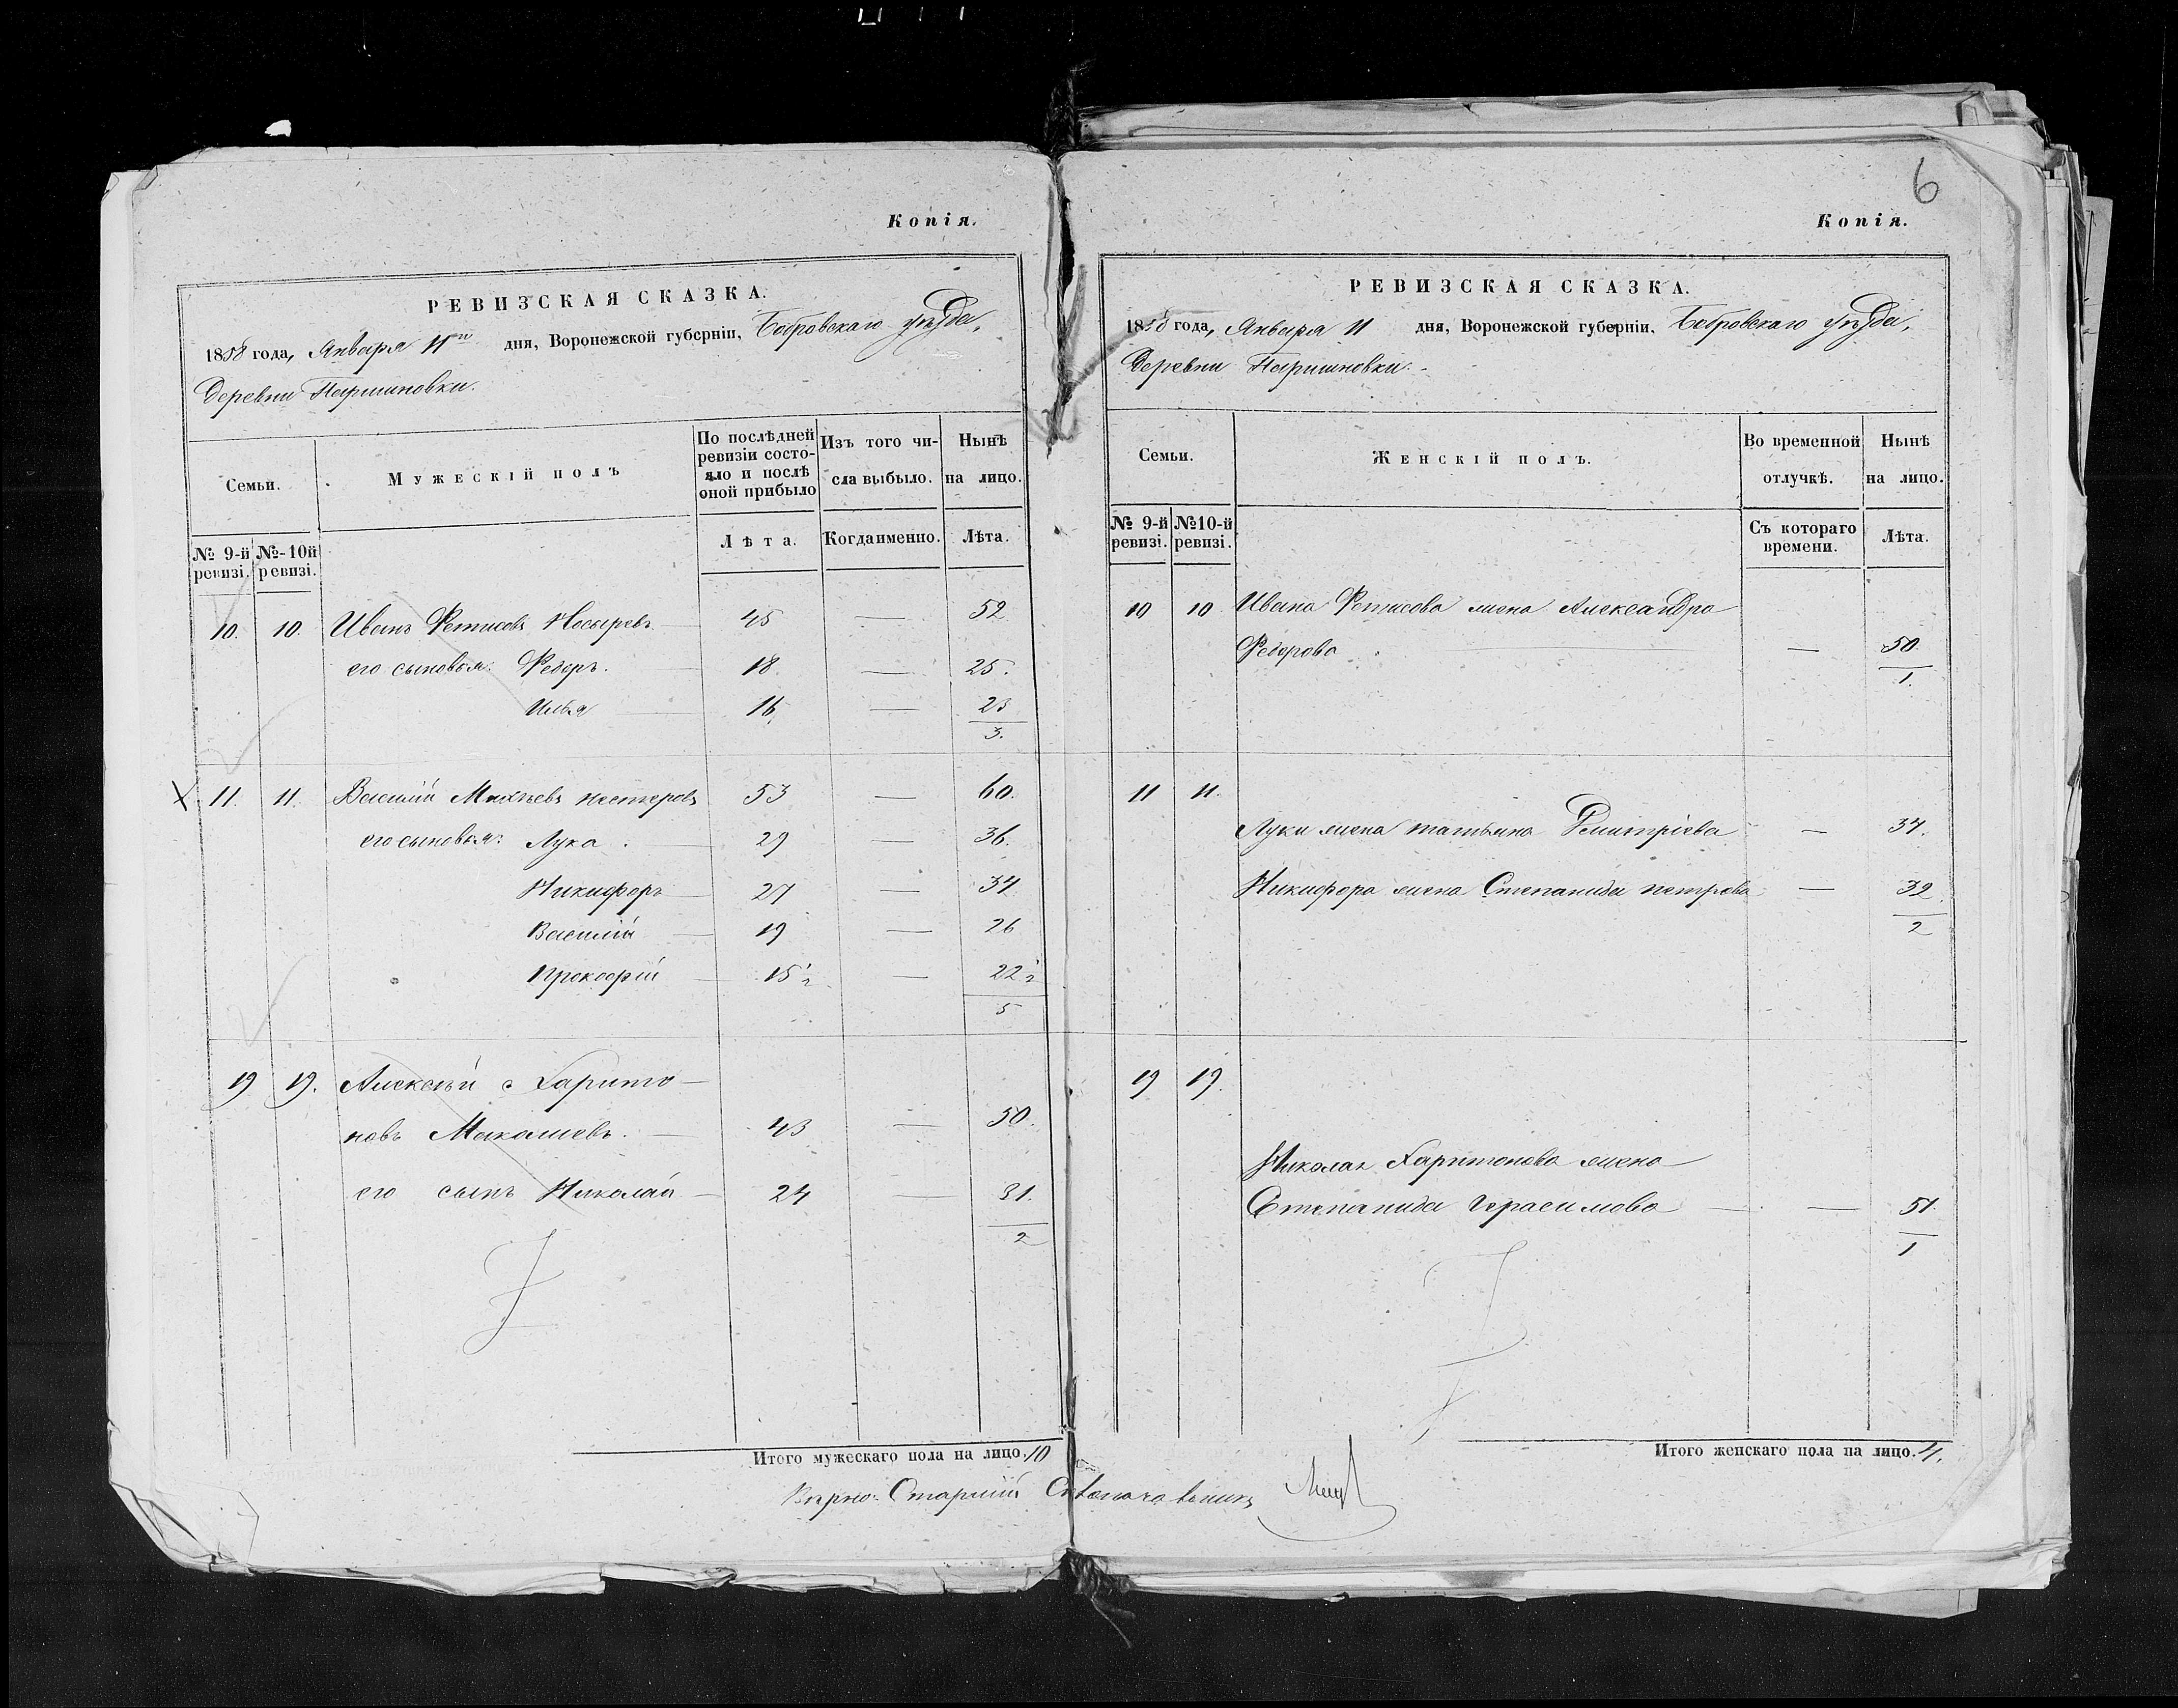 Копія.
РЕВИЗСКАЯ СКАЗКА.
1858 года, Января 11го дня, Воронежской губерніи, Бобровскаго уѣзда,
Деревни Паршиновки.
Семьи.
Мужескій полъ
По послѣдней ревизіи состояло и послѣ оной прибыло
Изъ того числа выбыло.
Нынѣ на лицо.
№ 9-й ревизі.
№-10й ревизі.
Лѣта.
Когда именно.
Лѣта.
10. 10. Иванъ Фетисовъ Носыревъ 45 — 52
его сыновья: Федоръ. 18 — 25.
Илья 16 — 23
3.
11. 11. Василій Михѣевъ нестеровъ 53 — 60.
его сыновья: Лука 29 — 36.
Никифоръ 27 — 34
Василій 19 — 26
Прокофій 15 1/2 — 22 1/2
5
19 19. Алексѣй Харито-
новъ Макашевъ. 43 — 50.
его сынъ Николай 24 — 31.
2
Итого мужескаго пола на лицо. 10
6
Копія.
РЕВИЗСКАЯ СКАЗКА.
1858 года, Января 11 дня, Воронежской губерніи, Бобровскаго уѣзда,
Деревни Паршиновки.
Семьи.
Женскій полъ.
Во временной отлучкѣ.
Нынѣ на лицо.
№ 9-й ревизі.
№10-й ревизі.
Съ котораго времени.
Лѣта.
10 10 Ивана Фетисова жена Александра
Федорова — 50.
1.
11 11.
Луки жена татьяна Дмитріева — 37.
Никифора жена Степанида петрова — 32
2
19 19.
Николая Харитонова жена
Степанида Герасимова — 51.
1
Итого женскаго пола на лицо. 4.
Вѣрно: Старшій